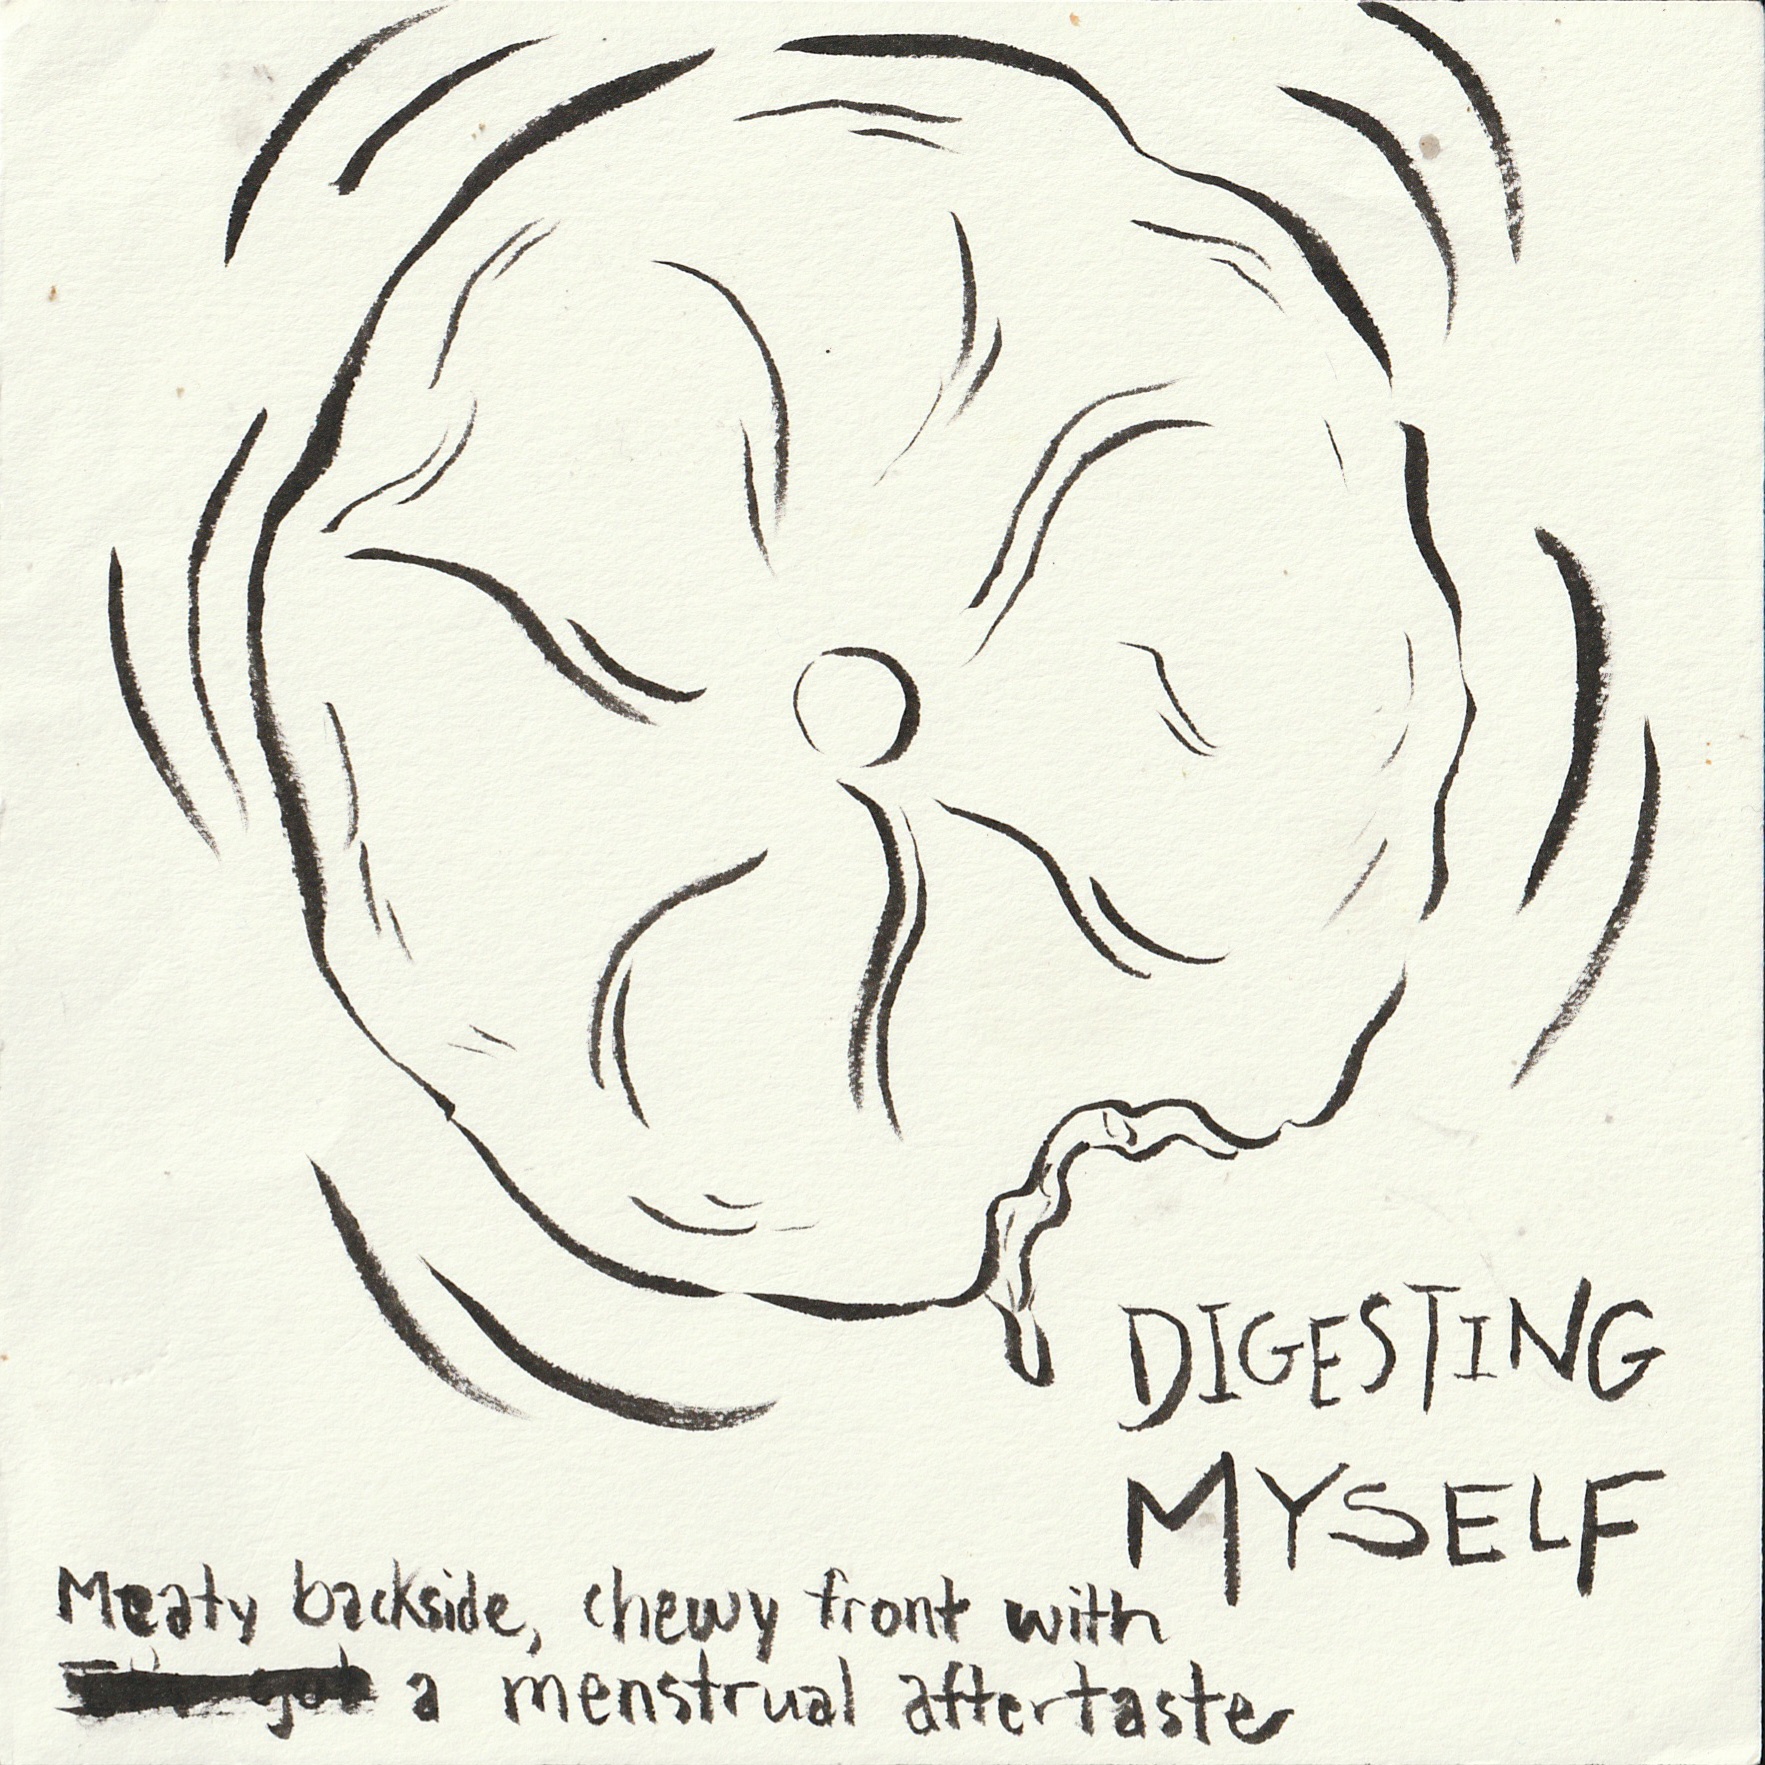 DIGESTING
MYSELF
Meaty backside, chewy front with
a menstrual aftertaste